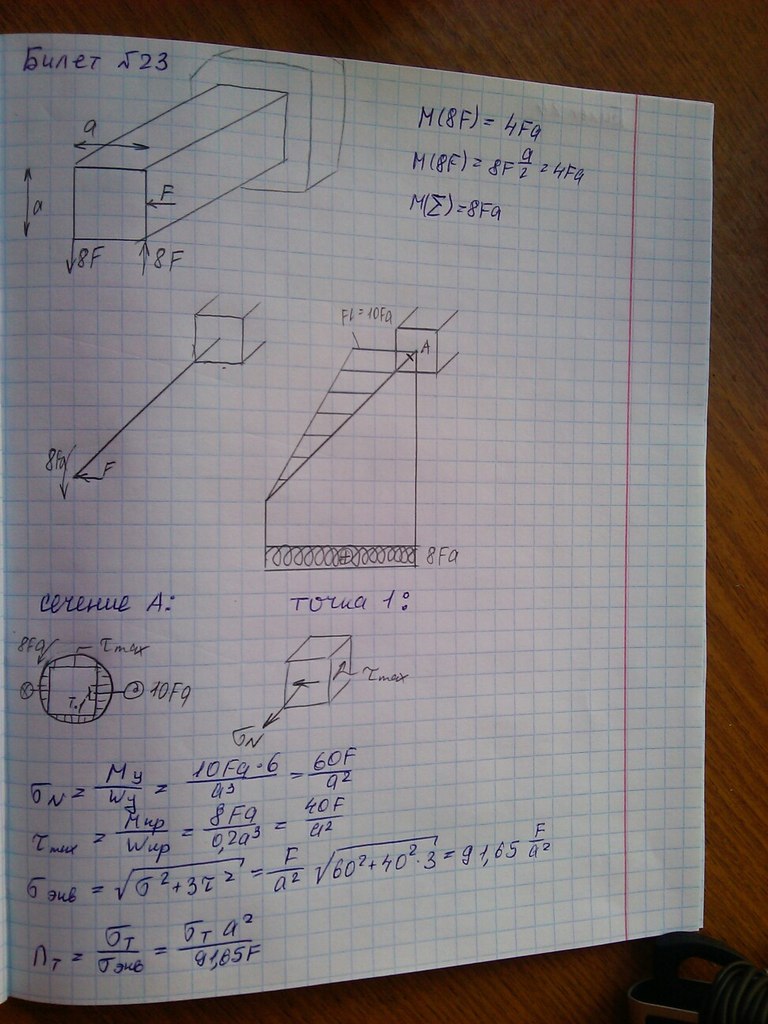 Билет №23
M(8F) = 4Fa
a
M(8F) = 8F a/2 = 4Fa
F
a
M(Σ) = 8Fa
8F
8F
Fl = 10Fa
A
8Fa
F
8Fa
сечение А:
точка 1:
8Fa
τmax
10Fa
т.1
τmax
σN
σN = Mу/Wу = 10Fa·6/a³ = 60F/a²
τmax = Mкр/Wкр = 8Fa/0,2a³ = 40F/a²
σэкв = √σ²+3τ² = F/a² √60²+40²·3 = 91,65 F/a²
nт = σт/σэкв = σт a²/91,65F